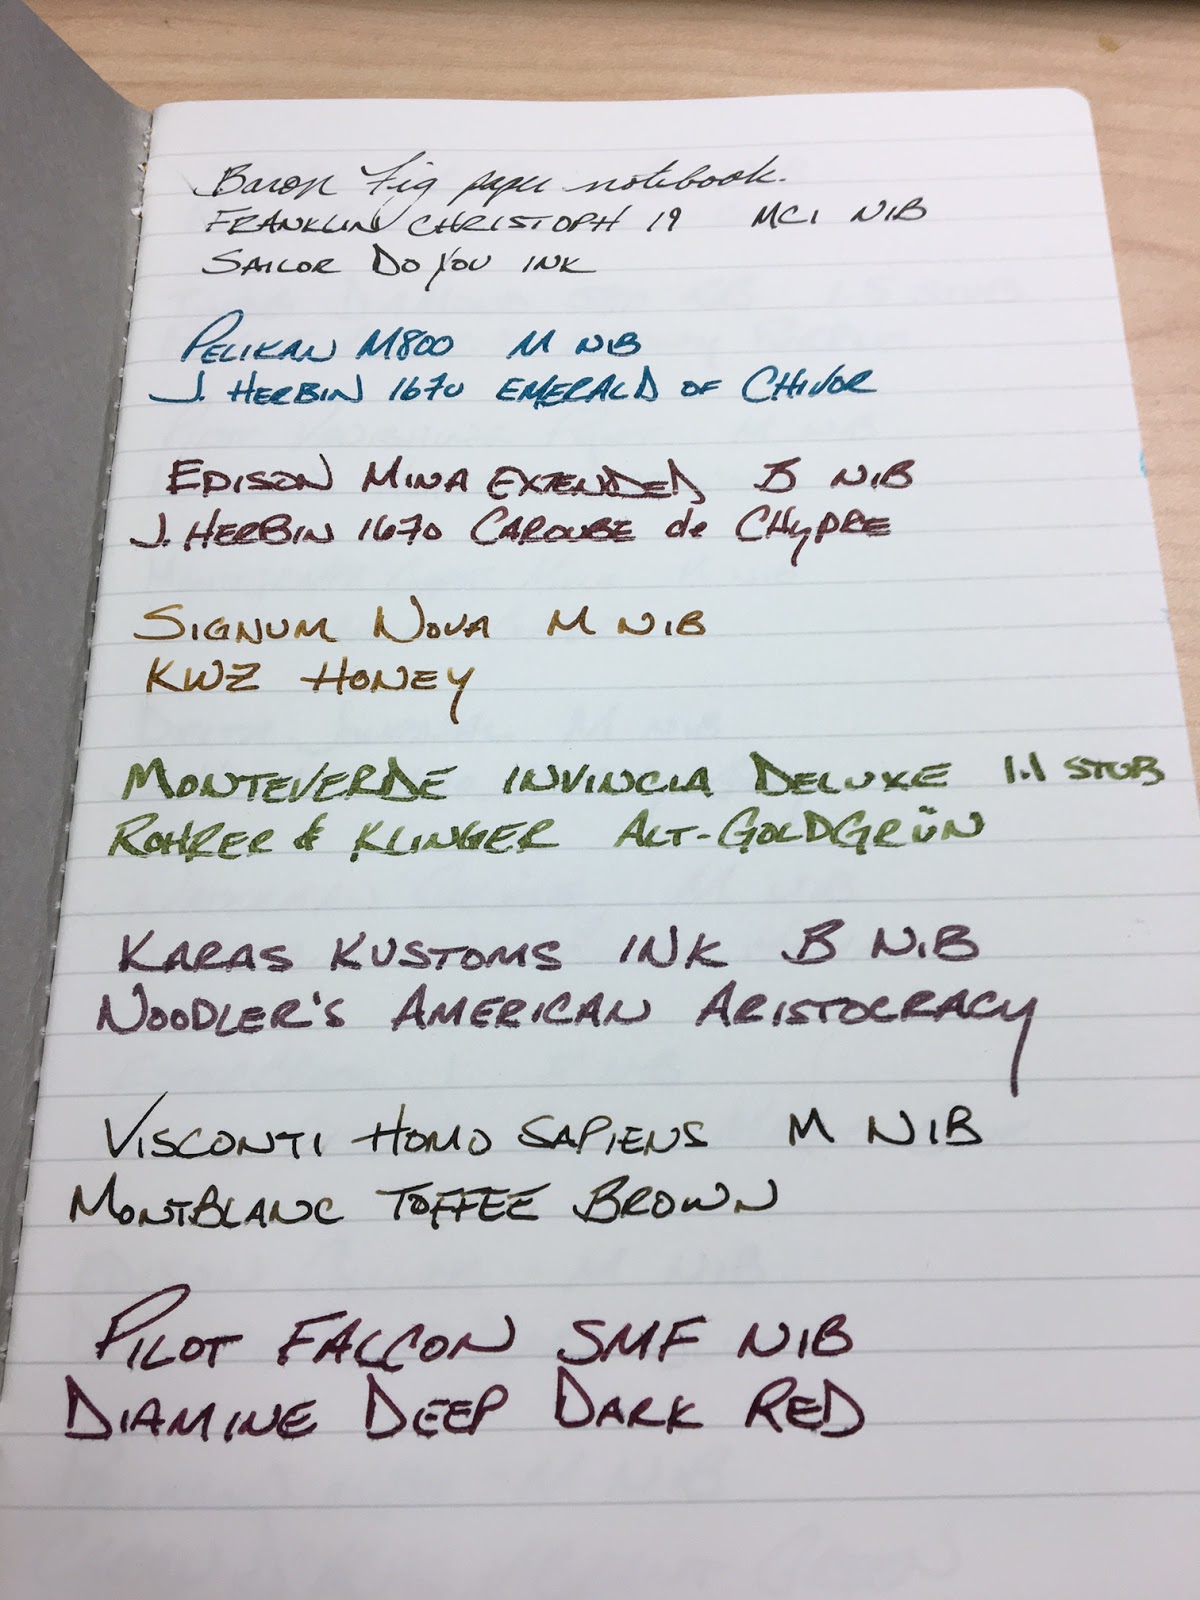 Baron Fig paper notebook.
FRANKLIN CHRISTOPH 19 MCI NIB
SAILOR DOYOU INK
PELIKAN M800 M NIB
J. HERBIN 1670 EMERALD OF CHIVOR
EDISON MINA EXTENDED B NIB
J. HERBIN 1670 CAROUBE de CHYPRE
SIGNUM NOVA M NIB
KWZ HONEY
MONTEVERDE INVINCIA DELUXE 1.1 STUB
ROHRER & KLINGER ALT-GOLDGRÜN
KARAS KUSTOMS INK B NIB
NOODLER'S AMERICAN ARISTOCRACY
VISCONTI HOMO SAPIENS M NIB
MONTBLANC TOFFEE BROWN
PILOT FALCON SMF NIB
DIAMINE DEEP DARK RED